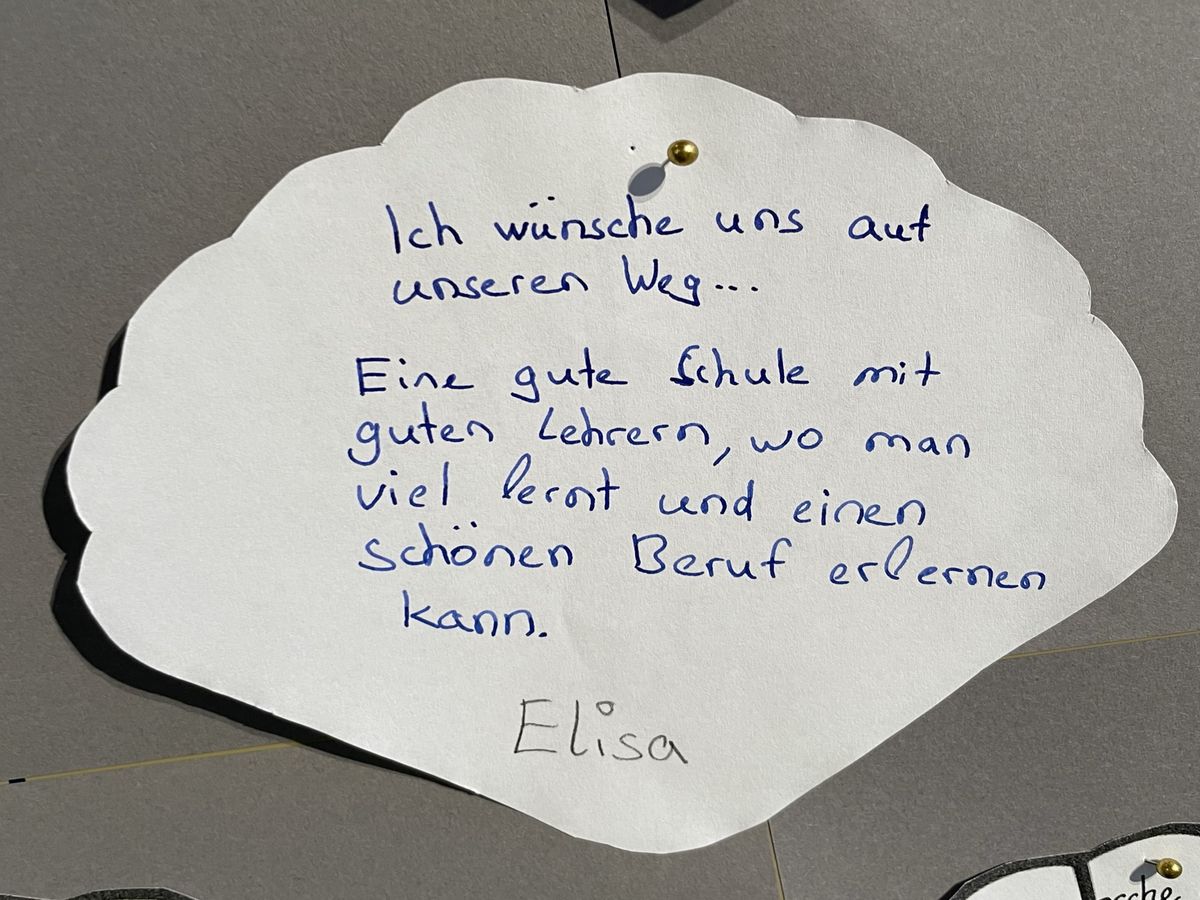 Ich wünsche uns auf
unseren Weg...
Eine gute Schule mit
guten Lehrern, wo man
viel lernt und einen
schönen Beruf erlernen
kann.
Elisa